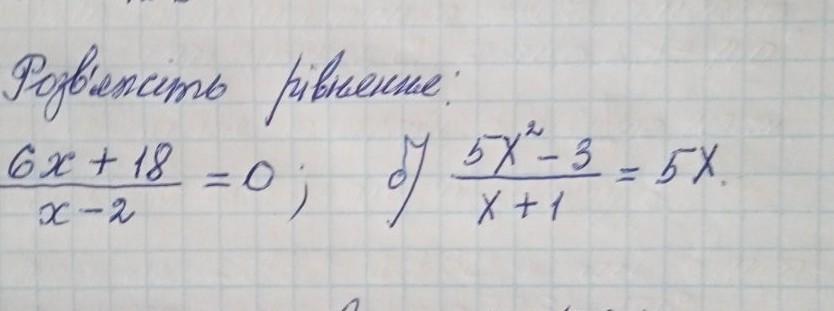 Розв'яжіть рівняння:
(6x + 18)/(x - 2) = 0; б) (5x² - 3)/(x + 1) = 5x.